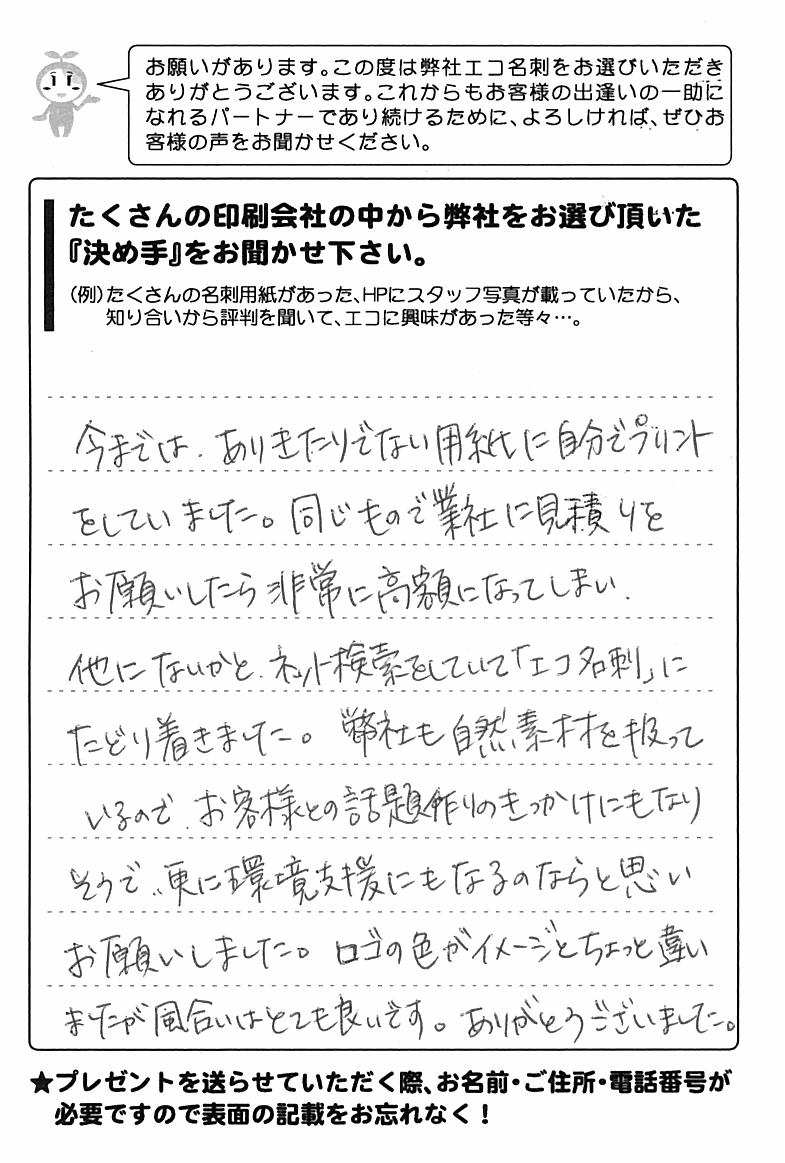 お願いがあります。この度は弊社エコ名刺をお選びいただき
ありがとうございます。これからもお客様の出逢いの一助に
なれるパートナーであり続けるために、よろしければ、ぜひお
客様の声をお聞かせください。
たくさんの印刷会社の中から弊社をお選び頂いた
『決め手』をお聞かせ下さい。
(例)たくさんの名刺用紙があった、HPにスタッフ写真が載っていたから、
知り合いから評判を聞いて、エコに興味があった等々…。
今までは、ありきたりでない用紙に自分でプリント
をしていました。同じもので業社に見積りを
お願いしたら非常に高額になってしまい、
他にないかと、ネット検索をしていて「エコ名刺」に
たどり着きました。弊社も自然素材を扱って
いるので、お客様との話題作りのきっかけにもなり
そうで、更に環境支援にもなるのならと思い
お願いしました。ロゴの色がイメージとちょっと違い
ましたが風合いはとても良いです。ありがとうございました。
★プレゼントを送らせていただく際、お名前・ご住所・電話番号が
必要ですので表面の記載をお忘れなく！